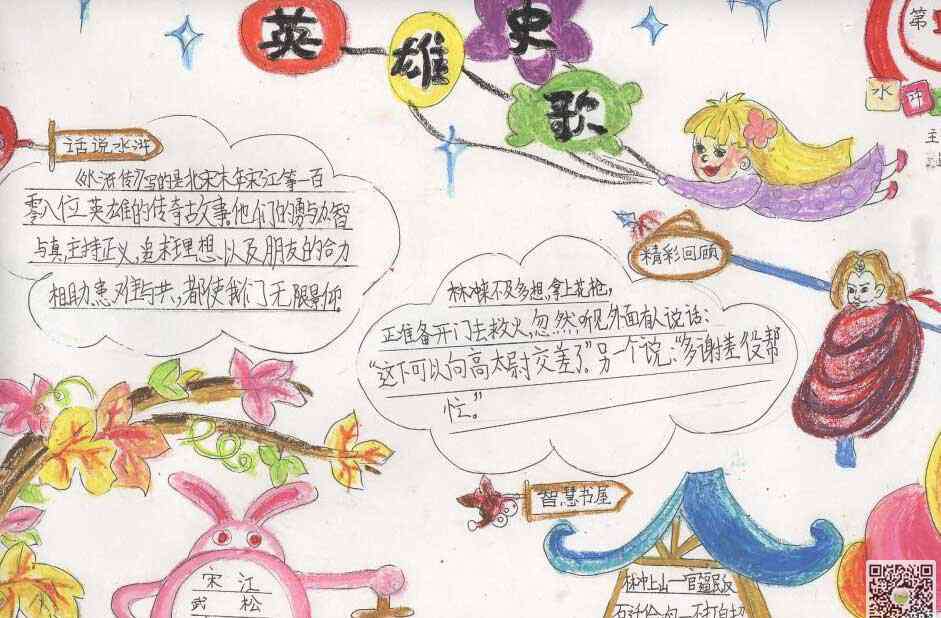 英雄史歌
第
水浒
主
话说水浒
《水浒传》写的是北宋末年宋江等一百
零八位英雄的传奇故事,他们的勇与力智
与真,主持正义,追求理想,以及朋友的合力
相助,患难与共,都使我们无限景仰。
精彩回顾
林冲来不及多想,拿上花枪,
正准备开门去救火,忽然听见外面有人说话:
“这下可以向高太尉交差了。”另一个说:“多谢差役帮
忙。”
智慧书屋
宋 江
武 松
林冲上山一官逼民反